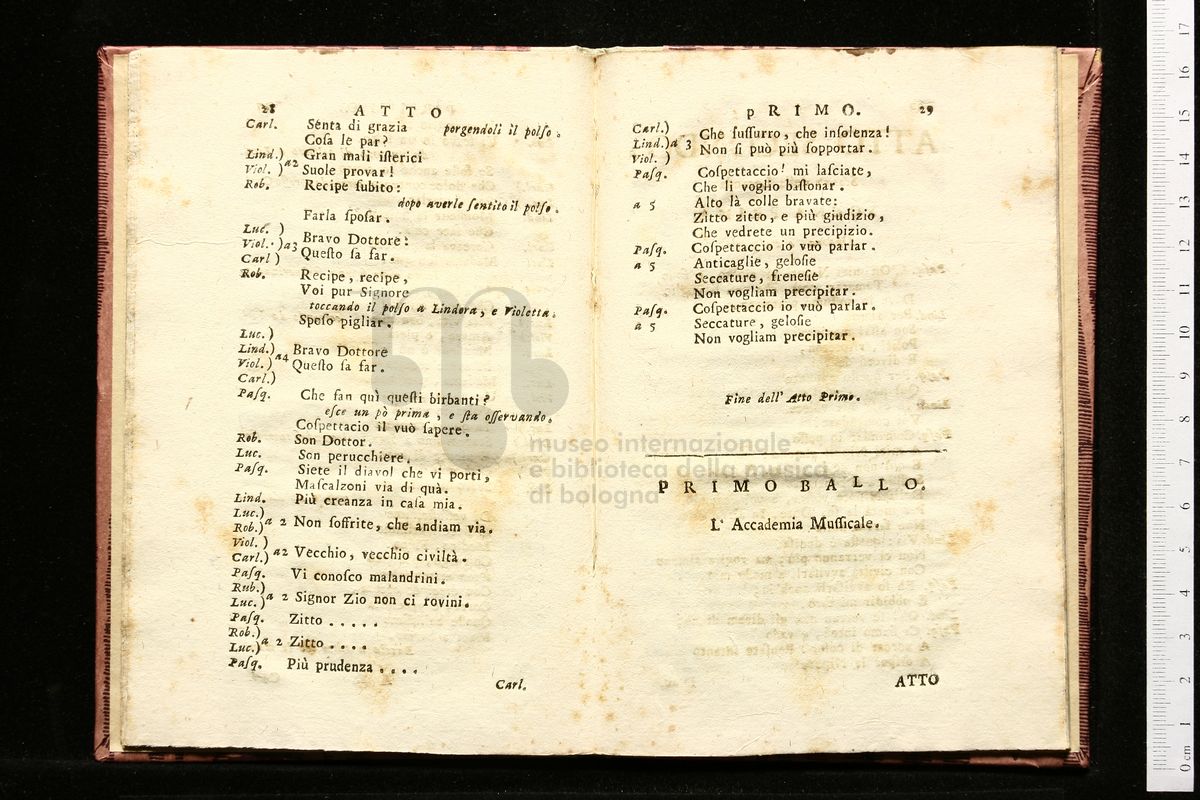 28 ATTO
Carl. Senta di grazia porgendoli il polſo.
Coſa le par?
Lind.) a2 Gran mali iſterici
Viol. ) Suole provar!
Rob. Recipe ſubito:
dopo averle ſentito il polſo.
Farla ſpoſar.
Luc. )
Viol. )a3 Bravo Dottore!
Carl ) Queſto ſa far.
Rob. Recipe, recipe,
Voi pur Signore
toccando il polſo a Lindora, e Violetta.
Spoſo pigliar.
Luc. )
Lind.) a4 Bravo Dottore
Viol. ) Queſto ſa far.
Carl.)
Paſq. Che fan quì queſti birbanti?
eſce un pò prima, e ſta oſſervando.
Coſpettacio il vuò ſapere.
Rob. Son Dottor.
Luc. Son perucchiere.
Paſq. Siete il diavol che vi porti,
Maſcalzoni via di quà.
Lind. Più creanza in caſa mia.
Luc.) a 2 Non ſoffrite, che andiam via.
Rob.)
Viol. ) a2 Vecchio, vecchio civiltà.
Carl.)
Paſq. Vi conoſco malandrini.
Rub.) a 2 Signor Zio non ci rovini.
Luc.)
Paſq. Zitto . . . . .
Rob.) a 2 Zitto . . . .
Luc.)
Paſq. Più prudenza . . . .
Carl.
PRIMO. 29
Carl.) Che ſuſſurro, che inſolenza!
Lind.)a 3 Non ſi può più ſopportar.
Viol. )
Paſq. Coſpettaccio! mi laſciate,
Che li voglio baſtonar.
a 5 Alto là colle bravate:
Zitto zitto, e più giudizio,
Che vedrete un precipizio.
Paſq. Coſpettaccio io vuò parlar.
a 5 Anticaglie, geloſie
Seccature, freneſie
Non vogliam precipitar.
Paſq. Coſpettaccio io vuò parlar.
a 5 Seccature, geloſie
Non vogliam precipitar.
Fine dell' Atto Primo.
PRIMO BALLO.
L' Accademia Muſſicale.
ATTO
museo internazionale
e biblioteca della musica
di bologna
0 cm 1 2 3 4 5 6 7 8 9 10 11 12 13 14 15 16 17